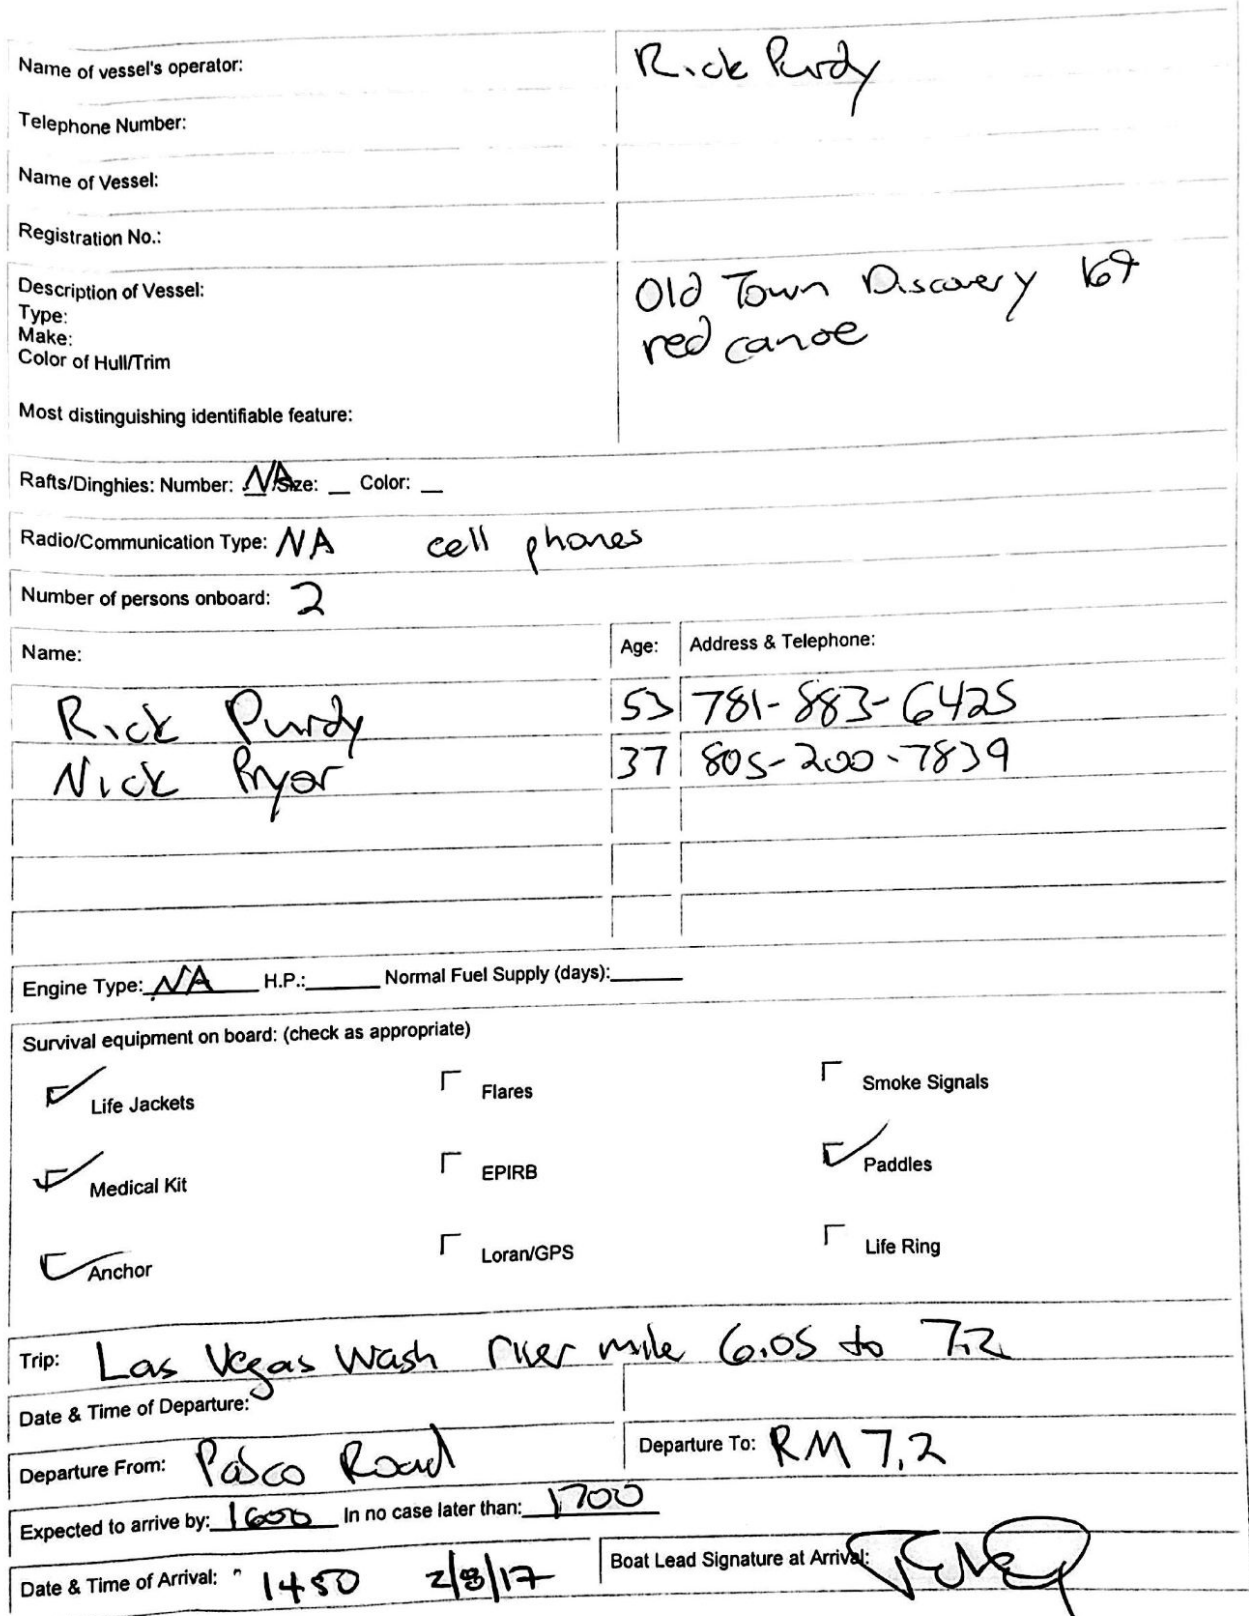 Name of vessel's operator: Rick Purdy
Telephone Number:
Name of Vessel:
Registration No.:
Description of Vessel: Old Town Discovery 169
Type: red canoe
Make:
Color of Hull/Trim
Most distinguishing identifiable feature:
Rafts/Dinghies: Number: NA Size: __ Color: __
Radio/Communication Type: NA cell phones
Number of persons onboard: 2
Name: Age: Address & Telephone:
Rick Purdy 53 781-883-6425
Nick Pryor 37 805-200-7839
Engine Type: NA H.P.:______ Normal Fuel Supply (days):______
Survival equipment on board: (check as appropriate)
✓ Life Jackets Flares Smoke Signals
✓ Medical Kit EPIRB ✓ Paddles
✓ Anchor Loran/GPS Life Ring
Trip: Las Vegas Wash river mile 6.05 to 7.2
Date & Time of Departure:
Departure From: Pabco Road Departure To: RM 7.2
Expected to arrive by: 1600 In no case later than: 1700
Date & Time of Arrival: 1450 2/8/17 Boat Lead Signature at Arrival: